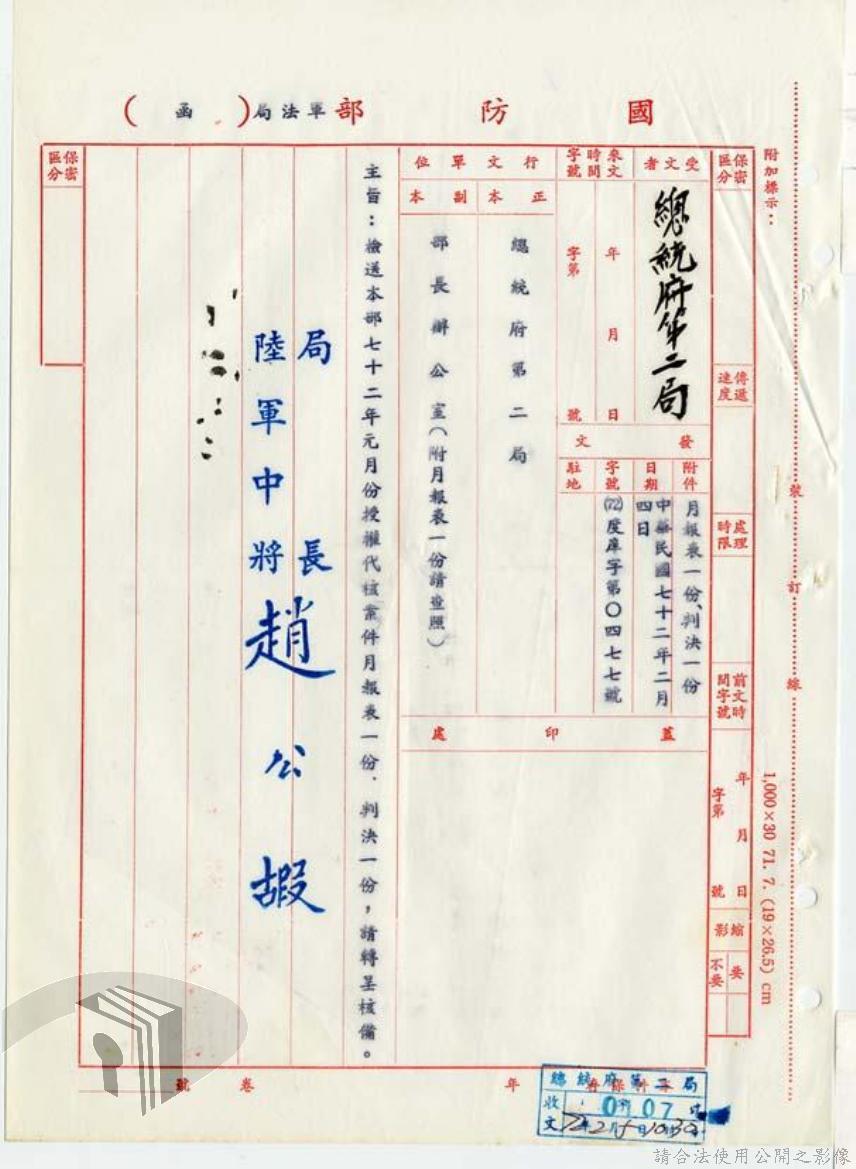 國防部軍法局(函)
附加標示：
裝訂線
1,000×30 71. 7. (19×26.5) cm
保密區分
傳遞速度
處理時限
前文時間字號
年月日
字第號
縮影
要
不要
受文者
總統府第二局
來文時間字號
年月日
字第號
發文
附件
月報表一份、判決一份
日期
中華民國七十二年二月四日
字號
(72)度庠字第〇四七七號
駐地
行文單位
正本
總統府第二局
副本
部長辦公室(附月報表一份請查照)
蓋印處
主旨：檢送本部七十二年元月份授權代核案件月報表一份、判決一份，請轉呈核備。
局長
陸軍中將趙公嘏
保密區分
年
卷號
總統府第二局
收文
請合法使用公開之影像